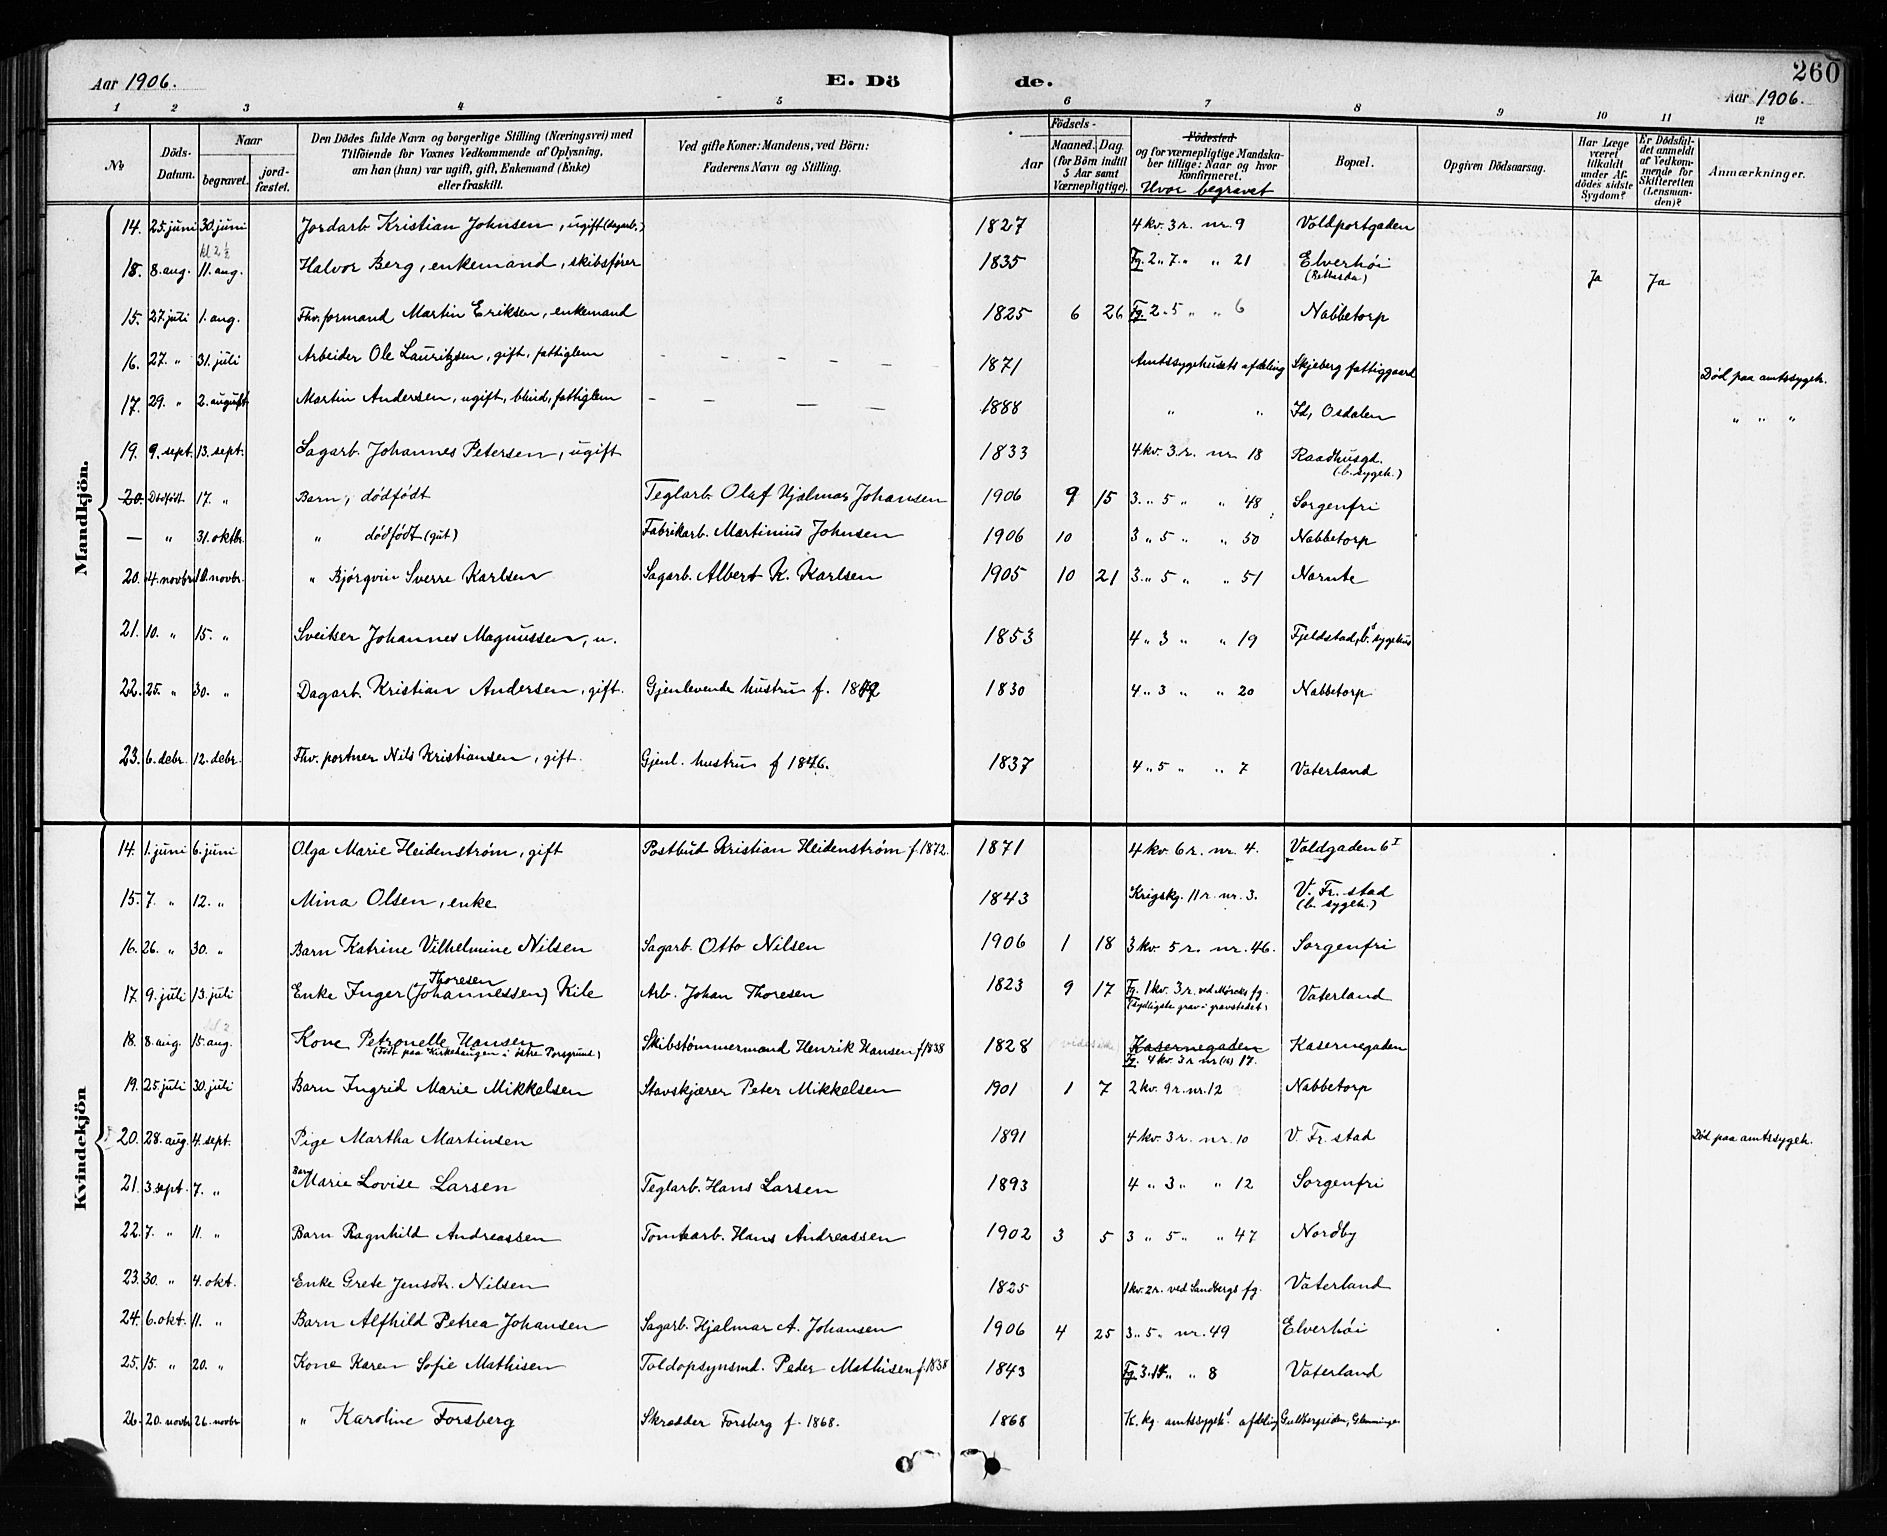 260
Aar 1906. E. Dö de. Aar 1906.
1 2 3 4 5 6 7 8 9 10 11 12
No Döds-Datum. Naar begravet. jord-fæstet. Den Dödes fulde Navn og borgerlige Stilling (Næringsvei) med Tilföiende for Voxnes Vedkommende af Oplysning, om han (hun) var ugift, gift, Enkemand (Enke) eller fraskilt. Ved gifte Koner: Mandens, ved Börn: Faderens Navn og Stilling. Födsels- Aar Maaned. Dag. (for Börn indtil 5 Aar samt Værnepligtige). Födested og for værnepligtige Mandskaber tillige: Naar og hvor konfirmeret. Hvor begravet Bopæl. Opgiven Dödsaarsag. Har Læge været tilkaldt under Afdödes sidste Sygdom? Er Dödsfaldet anmeldt af Vedkommende for Skifteretten (Lensmanden)? Anmærkninger.
Mandkjön.
14. 25. juni 30. juni Jordarb. Kristian Johnsen, ugift (dagarb.) 1827 4 kv. 3 r. nr. 9 Voldportgaden
kl 2 ½
18. 8. aug. 11. aug. Halvor Berg, enkemand, skibsfører 1835 Fg. 2 " 7. " " 21 Elverhøi Ja Ja
15. 27. juli 1. aug. Thv. formand Martin Eriksen, enkemand 1825 6 26 Fg. 2. 5 " " 6 Nabbetorp
16. 27. " 31. juli Arbeider Ole Lauritzsen, gift, fattiglem – – – – 1871 Amtssygehusets afdeling Skjeberg fattiggaard Død paa amtssygeh.
17. 29. " 2. august Martin Andersen, ugift, blind, fattiglem – – – – 1888 " " Id, Osdalen " " "
19. 9. sept. 13. sept. Sagarb. Johannes Petersen, ugift 1833 4 kv. 3. r. nr. 18 Raadhusgd. (b. sygeh.)
20. Dødfødt 17. " Barn, dødfødt Teglarb. Olaf Hjalmar Johansen 1906 9 15 3. " 5 " " 48 Sorgenfri
— " 31. oktbr. " dødfødt (gut) Fabrikarb. Martinius Johnsen 1906 10 3 " 5 " " 50 Nabbetorp
20. 4. novbr. 10. novbr. " Bjørgvin Sverre Karlsen Sagarb. Albert K. Karlsen 1905 10 21 3. " 5 " " 51 Narnte
21. 10. " 15. " Sveitser Johannes Magnussen, u. 1853 4 " 3 " " 19 Fjeldstad, b.s sygehus
22. 25. " 30. " Dagarb. Kristian Andersen, gift. Gjenlevende hustru f. 1830 4 " 3 " " 20 Nabbetorp
23. 6. debr. 12. debr. Thv. portner Nils Kristiansen, gift. Gjenl. hustru f 1846. 1837 4 " 5 " " 7 Vaterland
Kvindekjön
14. 1. juni 6. juni Olga Marie Heidenstrøm, gift Postbud Kristian Heidenstrøm f. 1872. 1871 4 kv. 6 r. nr. 4. Voldgaden 6 I
15. 7. " 12. " Mina Olsen, enke 1843 Krigskg. 11 r. nr. 3. V. Fr. stad (b. sygeh.)
16. 26. " 30. " Barn Katrine Vilhelmine Nilsen Sagarb. Otto Nilsen 1906 1 18 3 kv. 5 r. nr. 46. Sorgenfri
Thoresen
17. 9. juli 13. juli Enke Inger (Johannessen) Kile Arb. Johan Thoresen 1823 9 17 Fg. 1 kv. 3 r. ved Mørcks fg. (Sydligste grav i gravstedet) Vaterland
kl 2
18. 8. aug. 15. aug. Kone Petronelle Hansen Skibstømmermand Henrik Hansen f 1838 1828 Kasernegaden Kasernegaden
(født paa Kirkehaugen i østre Porsgrund) Fg. 4 kv. 3 r nr 17.
19. 25. juli 30. juli Barn Ingrid Marie Mikkelsen Stavskjærer Peter Mikkelsen 1901 1 7 2 kv. 9 r. nr. 12 Nabbetorp
20. 28. aug. 4. sept. Pige Martha Martinsen 1891 4 kv. 3 r. nr. 10 V. Fr. stad Død paa amtssygeh.
Barn
21. 3. sept. 7. " Marie Lovise Larsen Teglarb. Hans Larsen 1893 4 " 3 " " 12 Sorgenfri
22. 7. " 11. " Barn Ragnhild Andreassen Tomtearb. Hans Andreassen 1902 3 5 3 " 5 " " 47 Nordby
23. 30. " 4. okt. Enke Grete Jensdtr. Nilsen 1825 1 kv. 2 r. ved Sandbergs fg. Vaterland
24. 6. okt. 11. " Barn Alfhild Petrea Johansen Sagarb. Hjalmar A. Johansen 1906 4 25 3. " 5. " nr. 49 Elverhøi
25. 15. " 20. " Kone Karen Sofie Mathisen Toldopsynsmd. Peder Mathisen f. 1838 1843 Fg 3. 14. " " 8 Vaterland
26. 20. novbr 26. novbr " Karoline Forsberg Skrædder Forsberg f. 1868. 1868 K. kg. amtssygeh.s afdeling Gulbergsiden, Glemminge